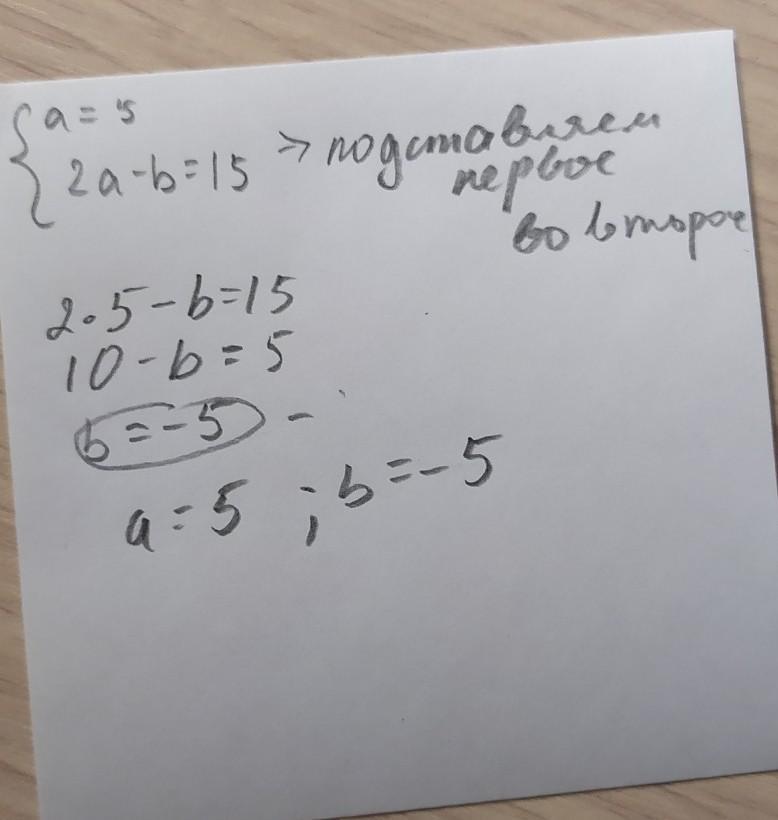 a = 5
2a - b = 15 => подставляем
первое
во второе
2·5 - b = 15
10 - b = 5
b = -5 -
a = 5 ; b = -5